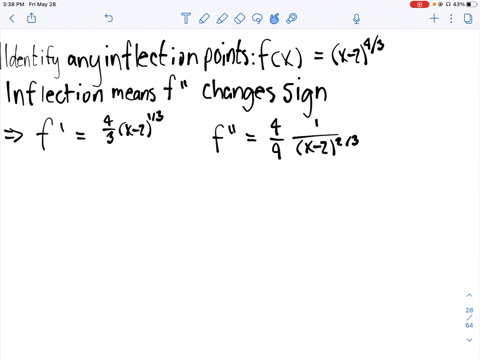 3:38 PM Fri May 28
43%
Identify any inflection points: f(x) = (x-2)^4/3
Inflection means f" changes sign
⇒ f' = 4/3 (x-2)^1/3 f" = 4/9 1/(x-2)^2/3
28
/
64